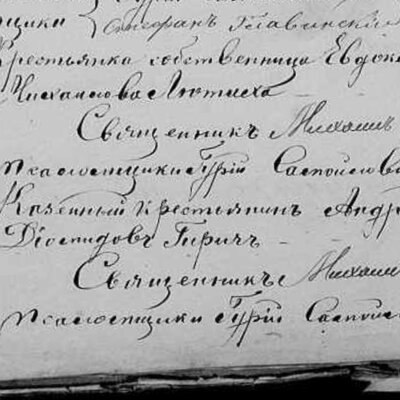 щики Стефанъ Главинскій
Крестьянка собственница Евдок
Михайлова Лютиха
Священникъ Михаилъ
Псаломщики Гурій
Казенный крестьянинъ Андр
Діомидовъ Гиричъ
Священникъ Михаил
Псаломщики Гурій